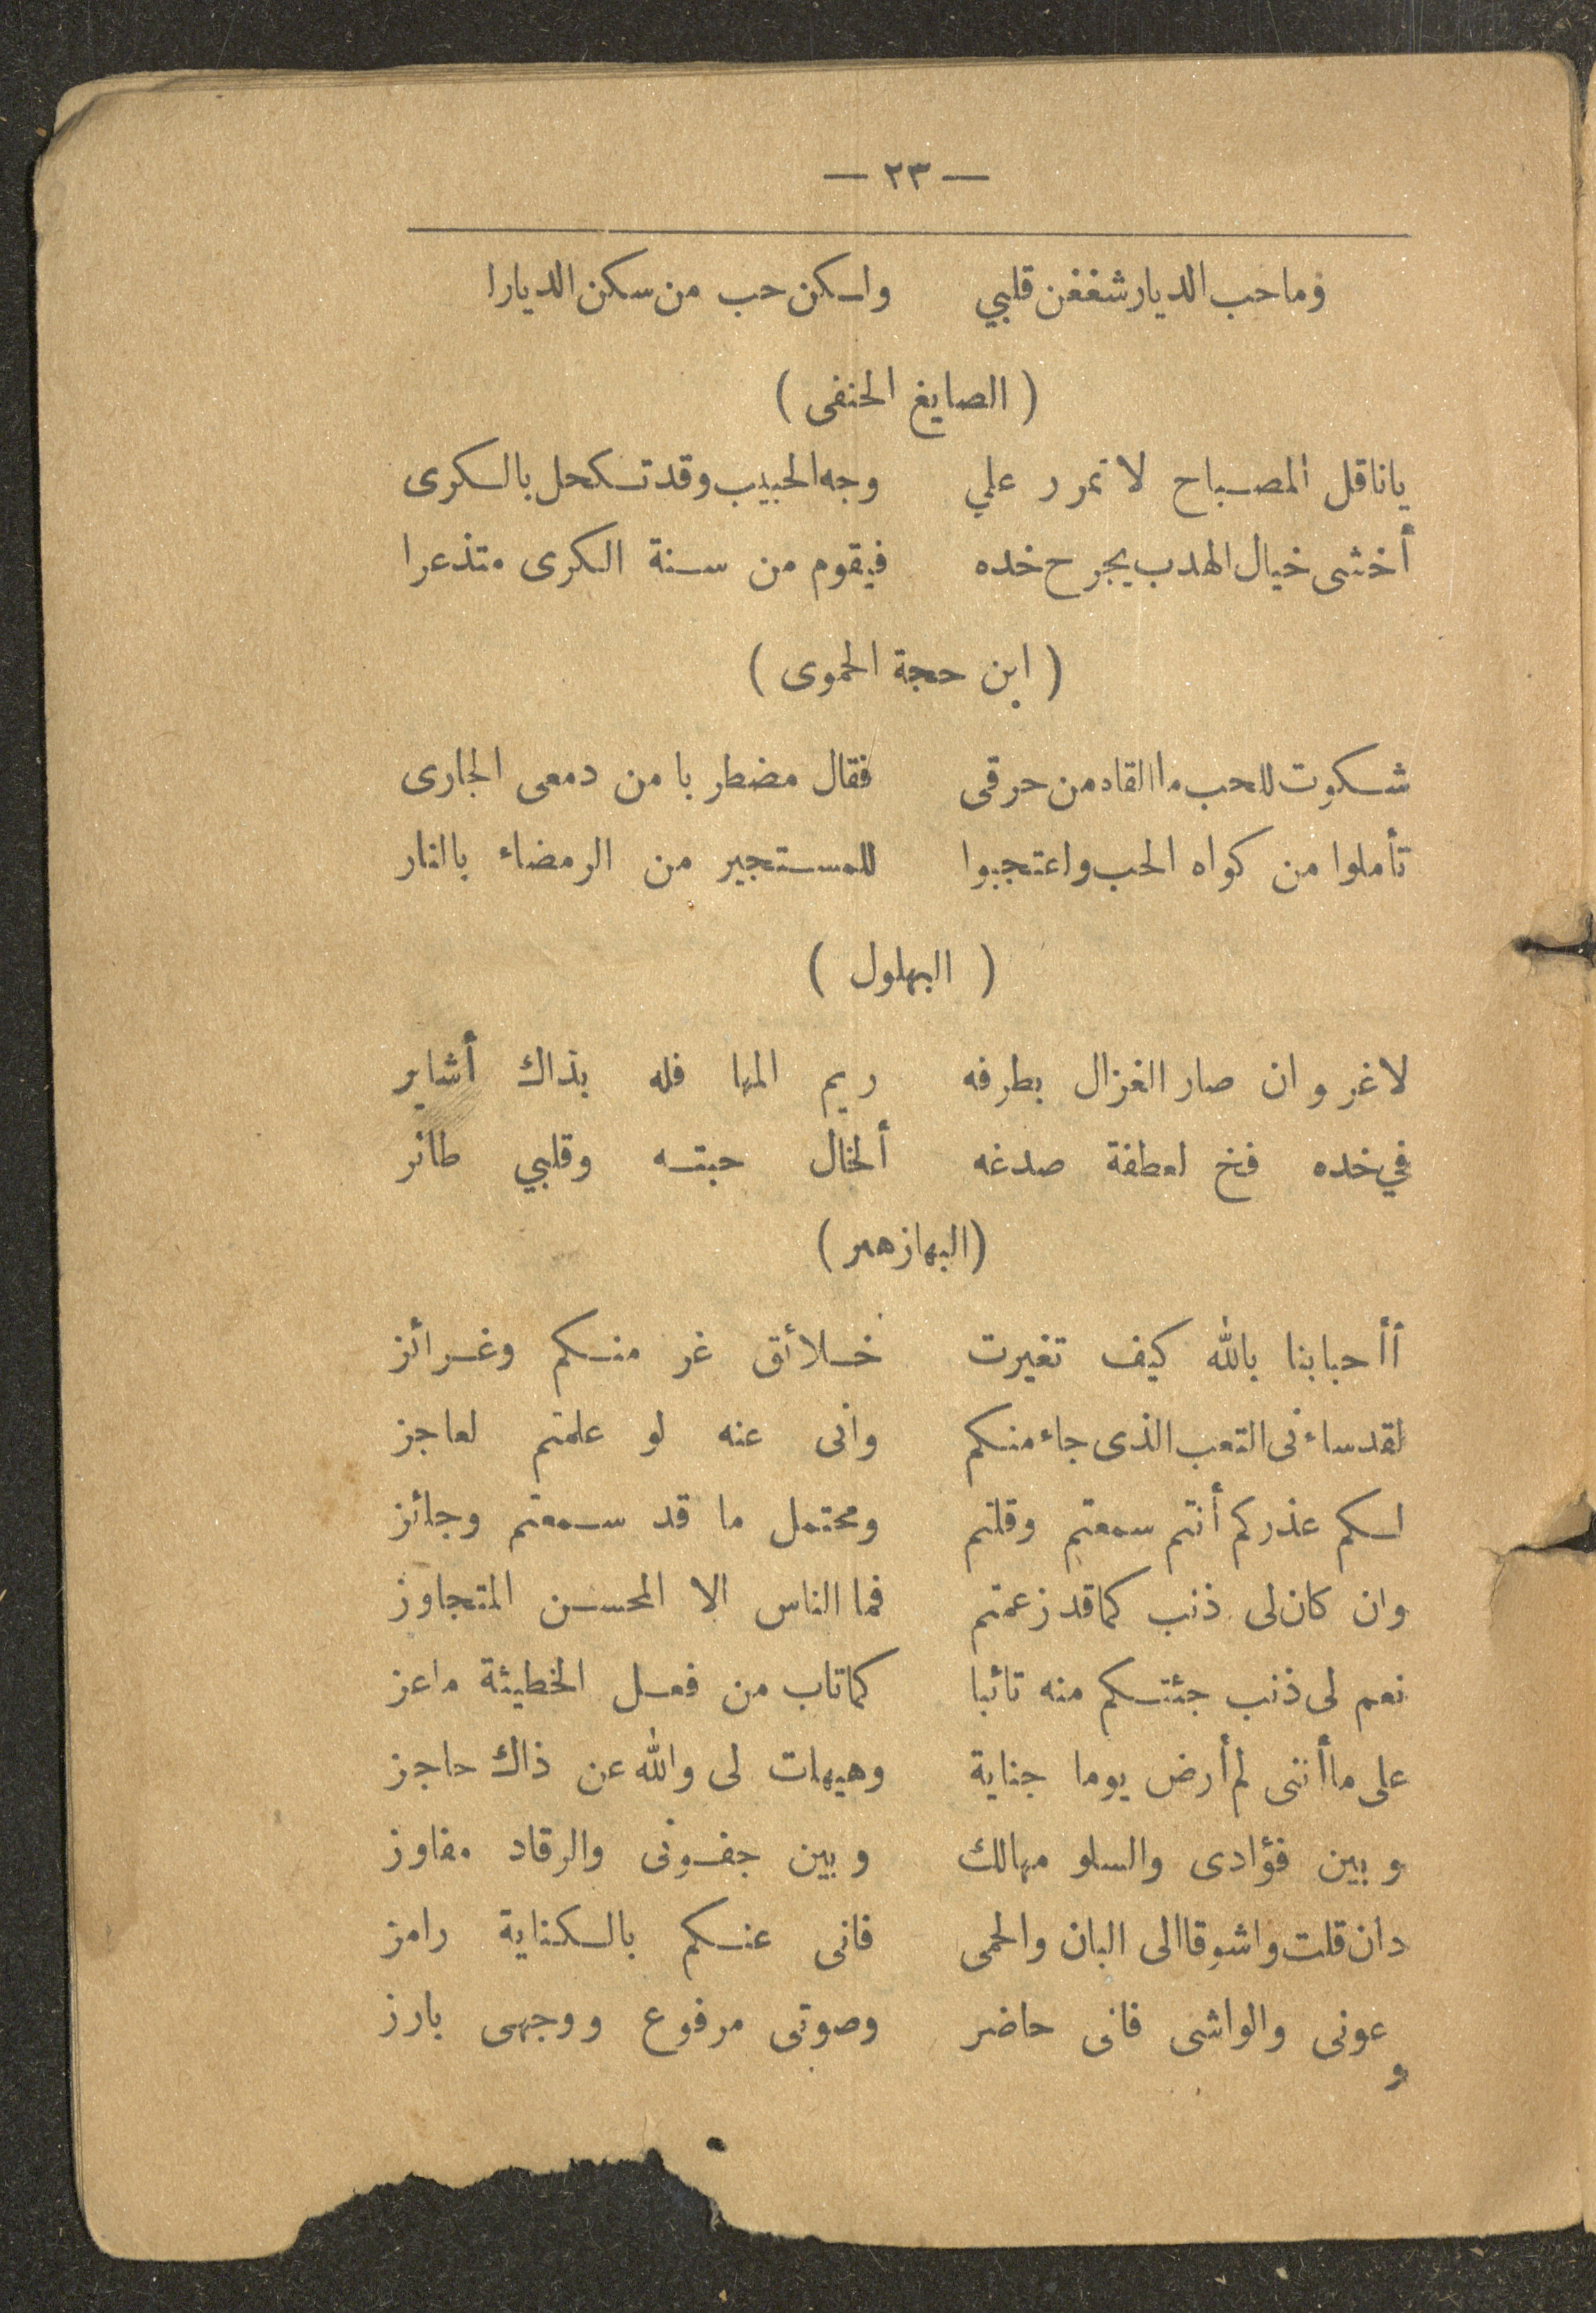 — ٢٣ —
وما حب الديار شغفن قلبي ولكن حب من سكن الديارا
( الصايغ الحنفى )
يا ناقل المصباح لا تمرر علي وجه الحبيب وقد تكحل بالكرى
أخشى خيال الهدب يجرح خده فيقوم من سنة الكرى متذعرا
( ابن حجة الحموى )
شكوت للحب ما القاه من حرقى فقال مضطربا من دمعى الجارى
تأملوا من كواه الحب واعتجبوا للمستجير من الرمضاء بالنار
( البهلول )
لا غرو ان صار الغزال بطرفه ريم المها فله بذاك أشاير
في خده فخ لعطفة صدغه ألخال حبته وقلبي طائر
(البهازهير)
أأحبابنا بالله كيف تغيرت خلائق غر منكم وغرائز
لقد ساءنى التعب الذى جاء منكم وانى عنه لو علمتم لعاجز
لكم عذركم أنتم سمعتم وقلتم ومحتمل ما قد سمعتم وجائز
وان كان لى ذنب كما قد زعمتم فما الناس الا المحسن المتجاوز
نعم لى ذنب جئتكم منه تائبا كما تاب من فعل الخطيئة ماعز
على ما أننى لم أرض يوما جناية وهيهات لى والله عن ذاك حاجز
وبين فؤادى والسلو مهالك وبين جفونى والرقاد مفاوز
دان قلت واشوقا الى البان والحمى فانى عنكم بالكناية رامز
وعونى والواشى فانى حاضر وصوتى مرفوع ووجهى بارز